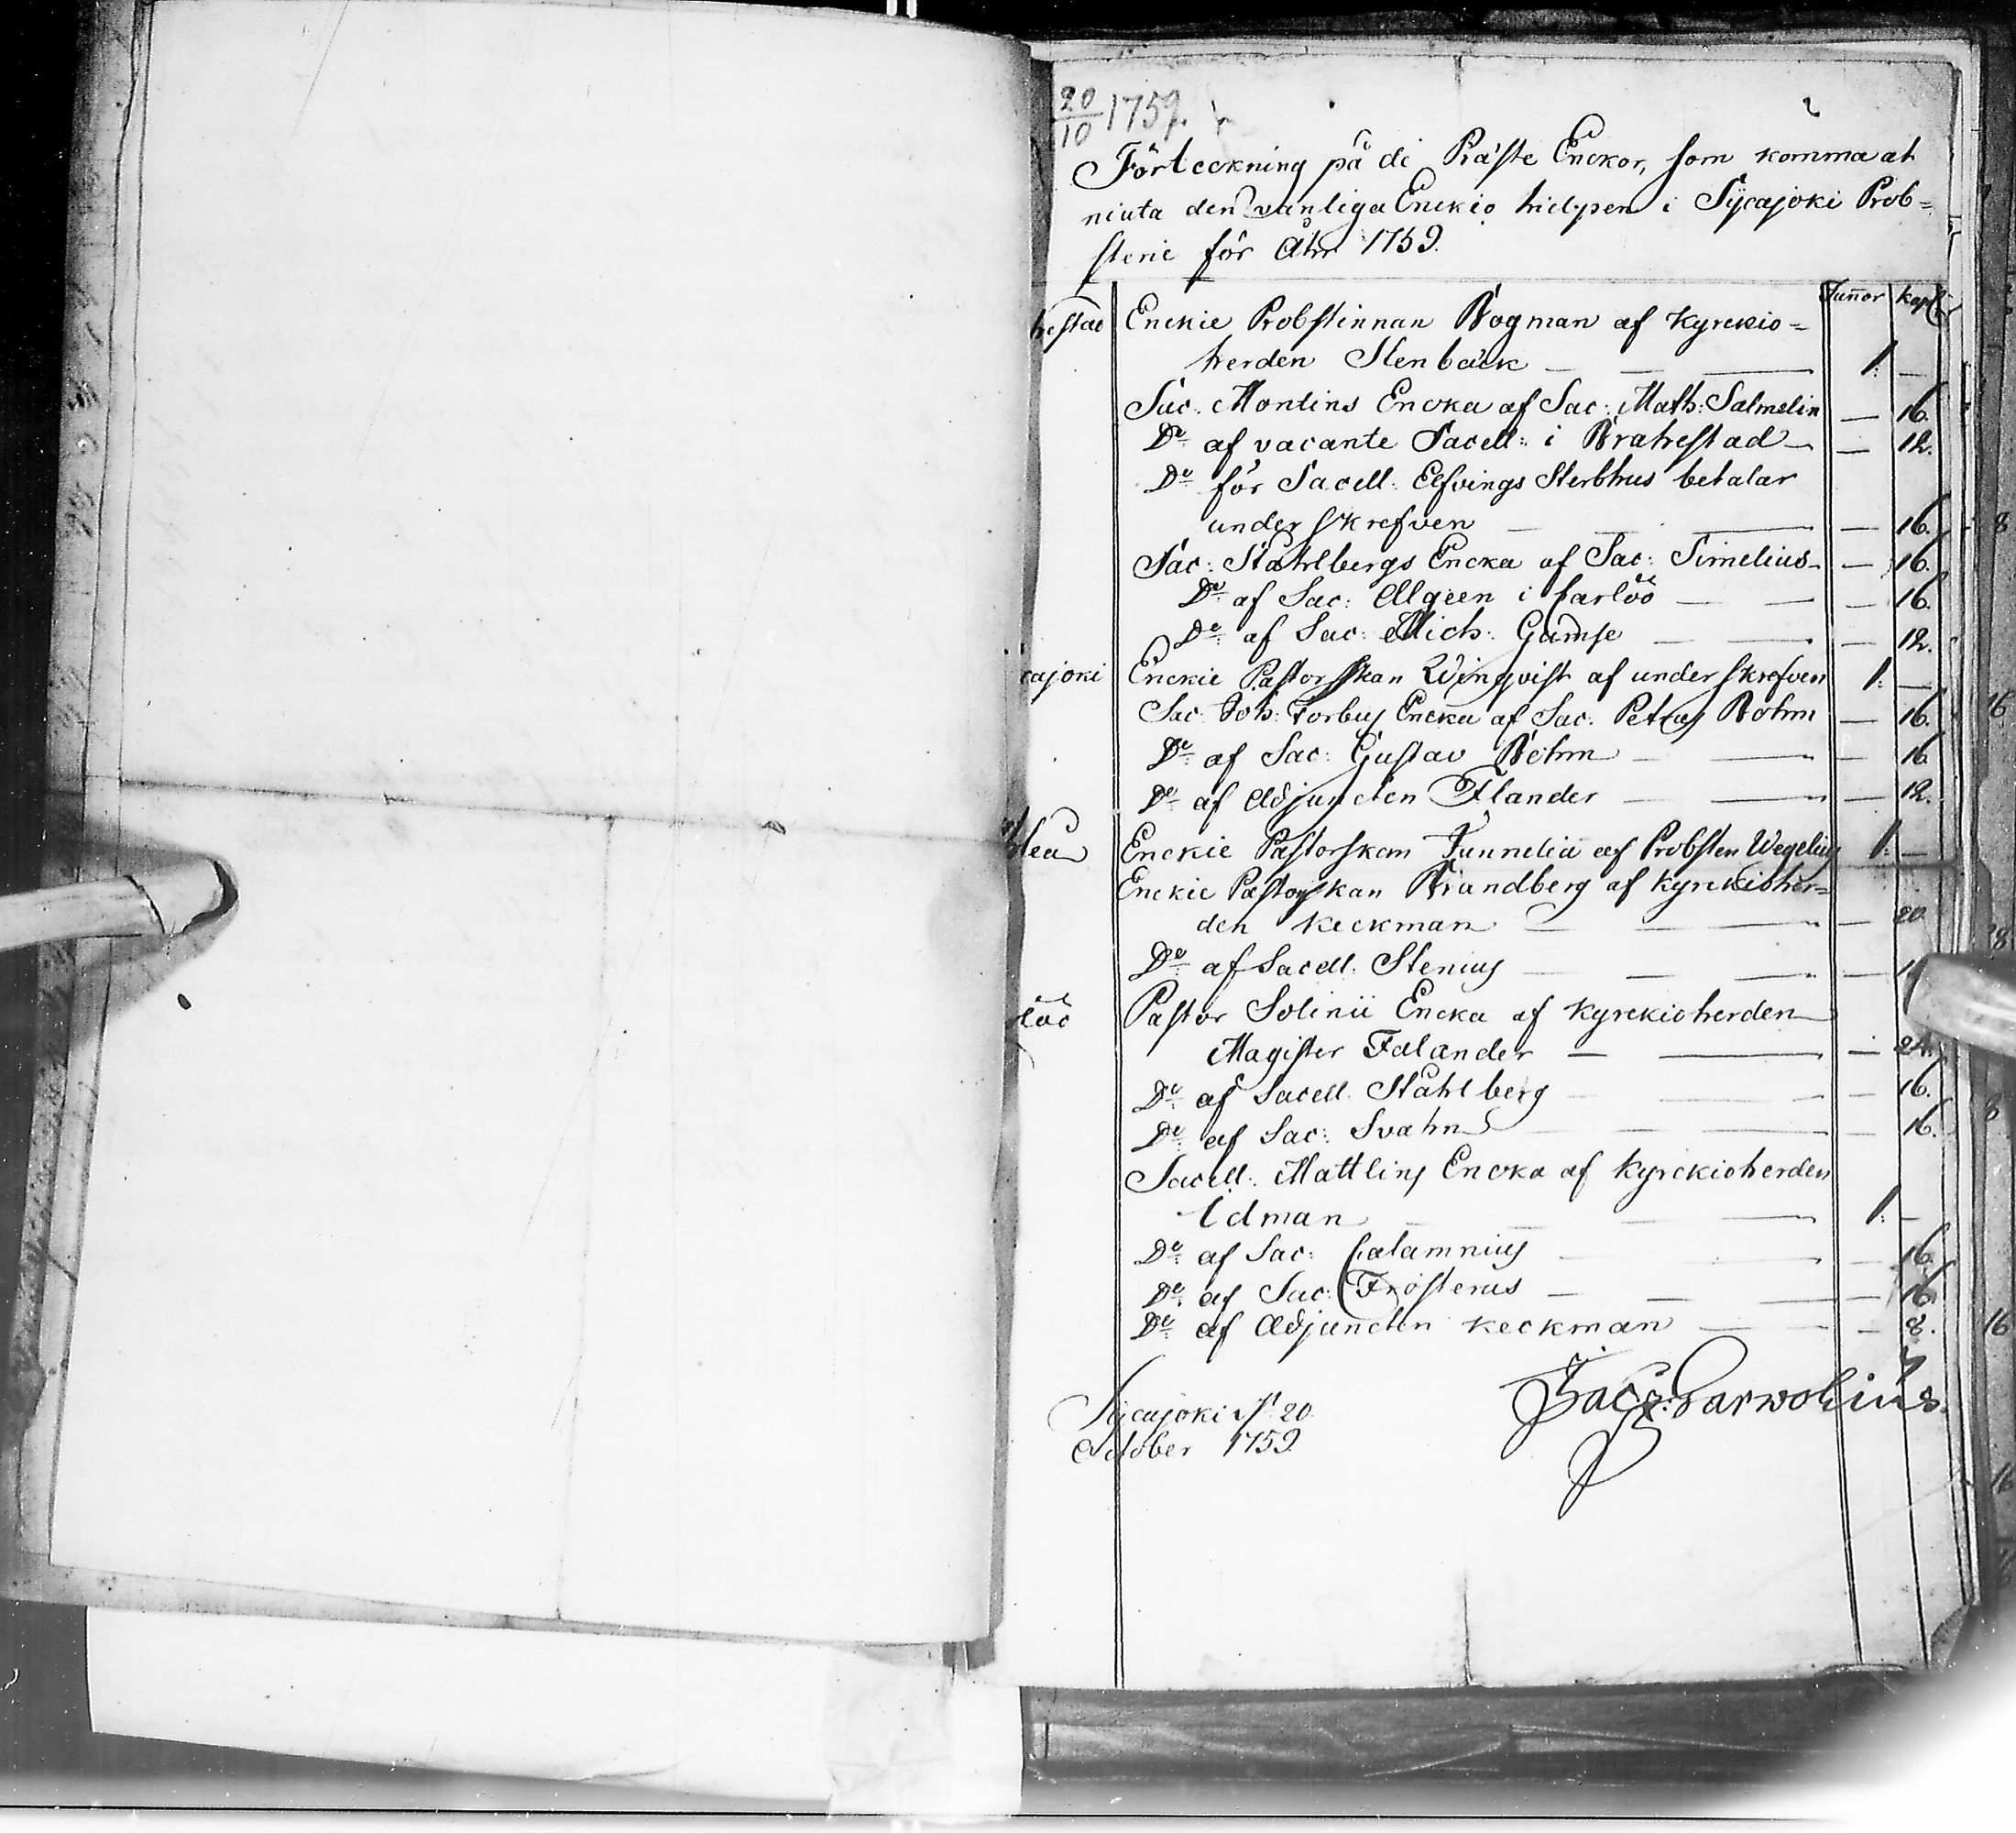 20/10 1759.
2
Förteckning på de Präste Enckor, som komma at
niuta den vanliga Enckio hielpen i Sijcajoki Prob=
sterie för Åhr 1759.
Tunnor kap:
hestad Enckie Probstinnan Bogman af Kyrckio=
herden Stenbäck — — — 1: —
Sac. Montins Encka af Sac: Math: Salmelin — 16.
Do af vacante Sacell: i Brahestad — — 12.
Do för Sacell: Elfvings Sterbhus betalar
underskrefven — — — 16.
Sac: Ståhlbergs Encka af Sac: Simelius — — 16.
Do af Sac: Algeen i Carlöö — — — 16.
Do af Sac: Mich: Gamse — — — 12.
cajoki Enckie Pastorskan Winqvist af underskrefven 1: —
Sac: Joh: Forbus Encka af Sac: Petrus Bohm — 16.
Do af Sac: Gustav Böhm — — — 16.
Do af Adjuncten Flander — — — 12.
lea Enckie Pastorskan Tunnelia af Probsten Wegelius 1: —
Enckie Pastorskan Brandberg af Kyrckioher=
den Keckman — — — — 20.
Do af Sacell. Stenius — — — —
löö Pastor Solinii Encka af Kyrckioherden
Magister Falander — — — 24.
Do af Sacell. Ståhlberg — — — 16.
Do af Sac: Svahn — — — 16.
Sacell: Mattlins Encka af Kyrckioherden
Idman — — — 1: —
Do af Sac: Calamnius — — — 16.
Do af Sac: Frosterus — — — 16.
Do af Adjuncten Keckman — — — 8.
Sijcajoki d. 20.
October 1759.
Jac: Carwolius.